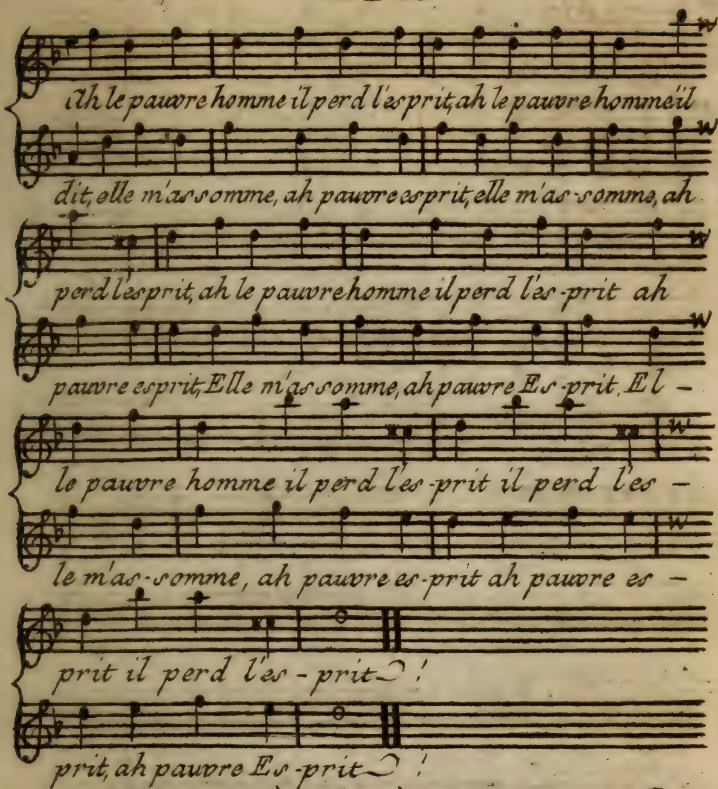 Ah le pauvre homme il perd l'esprit, ah le pauvre homme il
dit, elle m'assomme, ah pauvre esprit, elle m'as-somme, ah
perd l'esprit, ah le pauvre homme il perd l'es-prit ah
pauvre esprit, Elle m'assomme, ah pauvre Es-prit, El -
le pauvre homme il perd l'es-prit il perd l'es -
le m'as-somme, ah pauvre es-prit ah pauvre es -
prit il perd l'es-prit !
prit, ah pauvre Es-prit !